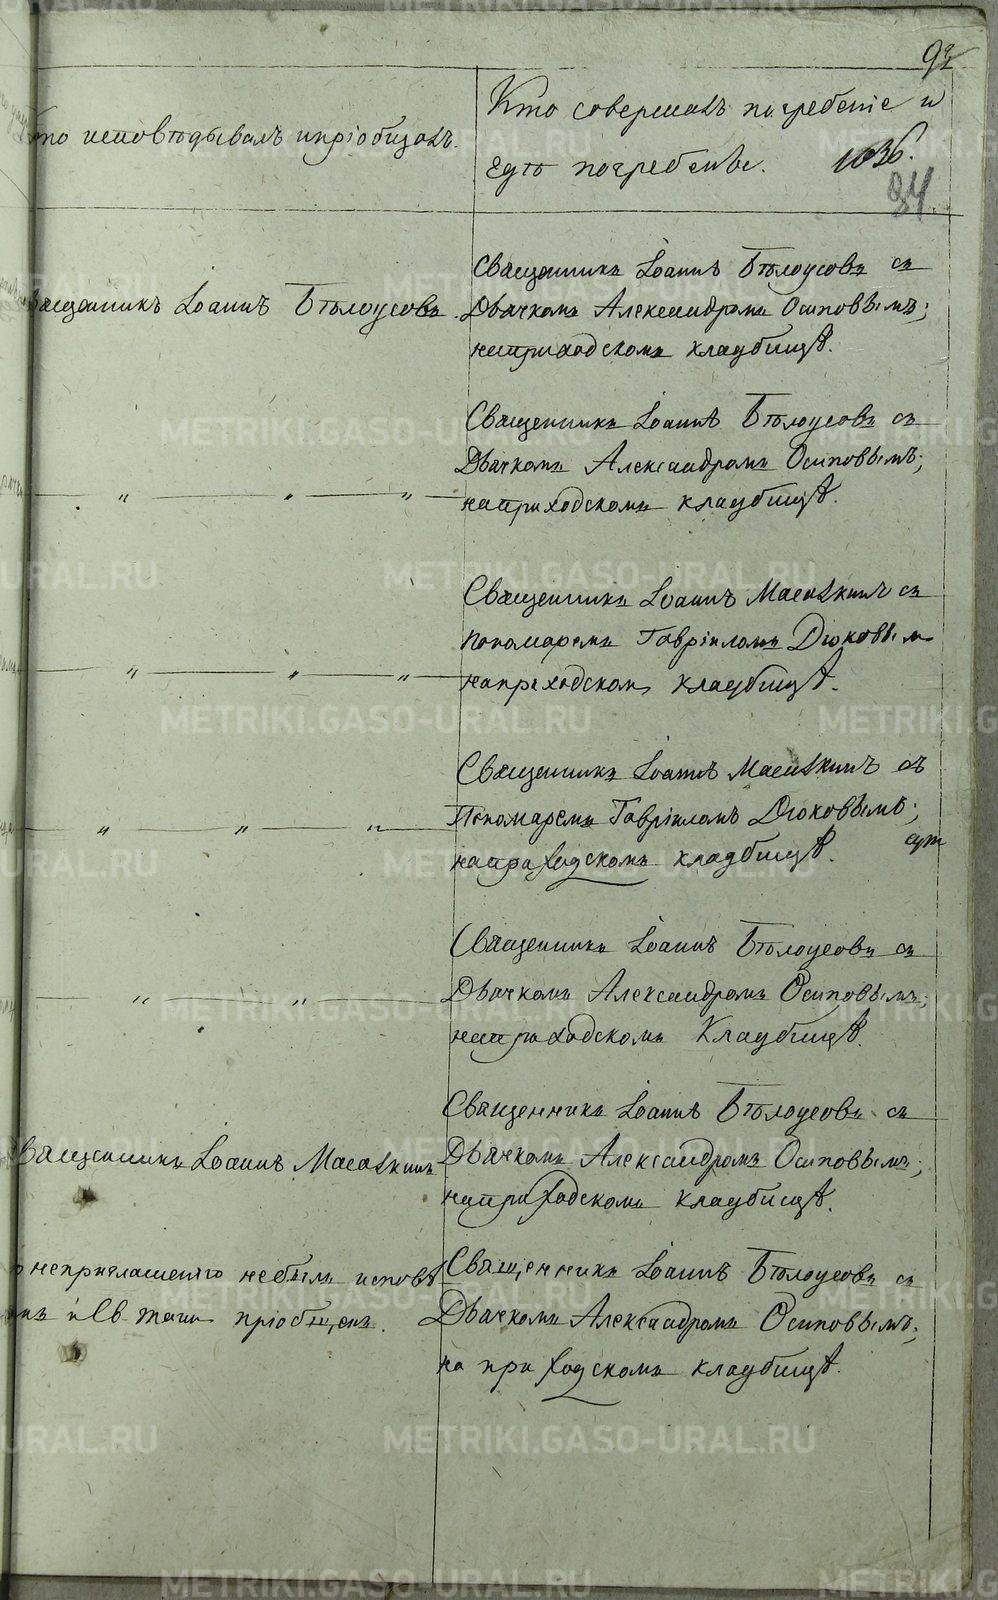 92
Кто исповѣдывалъ и пріобщалъ.
Кто совершалъ погребеніе и
гдѣ погребены.
1036.
84
Священникъ Іоаннъ Бѣлоусовъ.
Священникъ Іоаннъ Бѣлоусовъ съ
Дьячкомъ Александромъ Осиповымъ;
на приходскомъ кладбищѣ.
" " "
Священникъ Іоаннъ Бѣлоусовъ съ
Дьячкомъ Александромъ Осиповымъ;
на приходскомъ кладбищѣ.
" " "
Священникъ Іоаннъ съ
пономаремъ Гавріиломъ Дюковым
на приходскомъ кладбищѣ.
" " "
Священникъ Іоаннъ съ
Пономаремъ Гавріиломъ Дюковымъ;
на приходскомъ кладбищѣ.
" "
Священникъ Іоаннъ Бѣлоусовъ съ
Дьячкомъ Александромъ Осиповымъ;
на приходскомъ Кладбищѣ.
Священникъ Іоаннъ
Священникъ Іоаннъ Бѣлоусовъ съ
Дьячкомъ Александромъ Осиповымъ;
на приходскомъ кладбищѣ.
неприглашенію небылъ исповѣ
и Св. таин пріобщенъ.
Священникъ Іоаннъ Бѣлоусовъ съ
Дьячкомъ Александромъ Осиповымъ;
на приходскомъ кладбищѣ.
METRIKI.GASO-URAL.RU